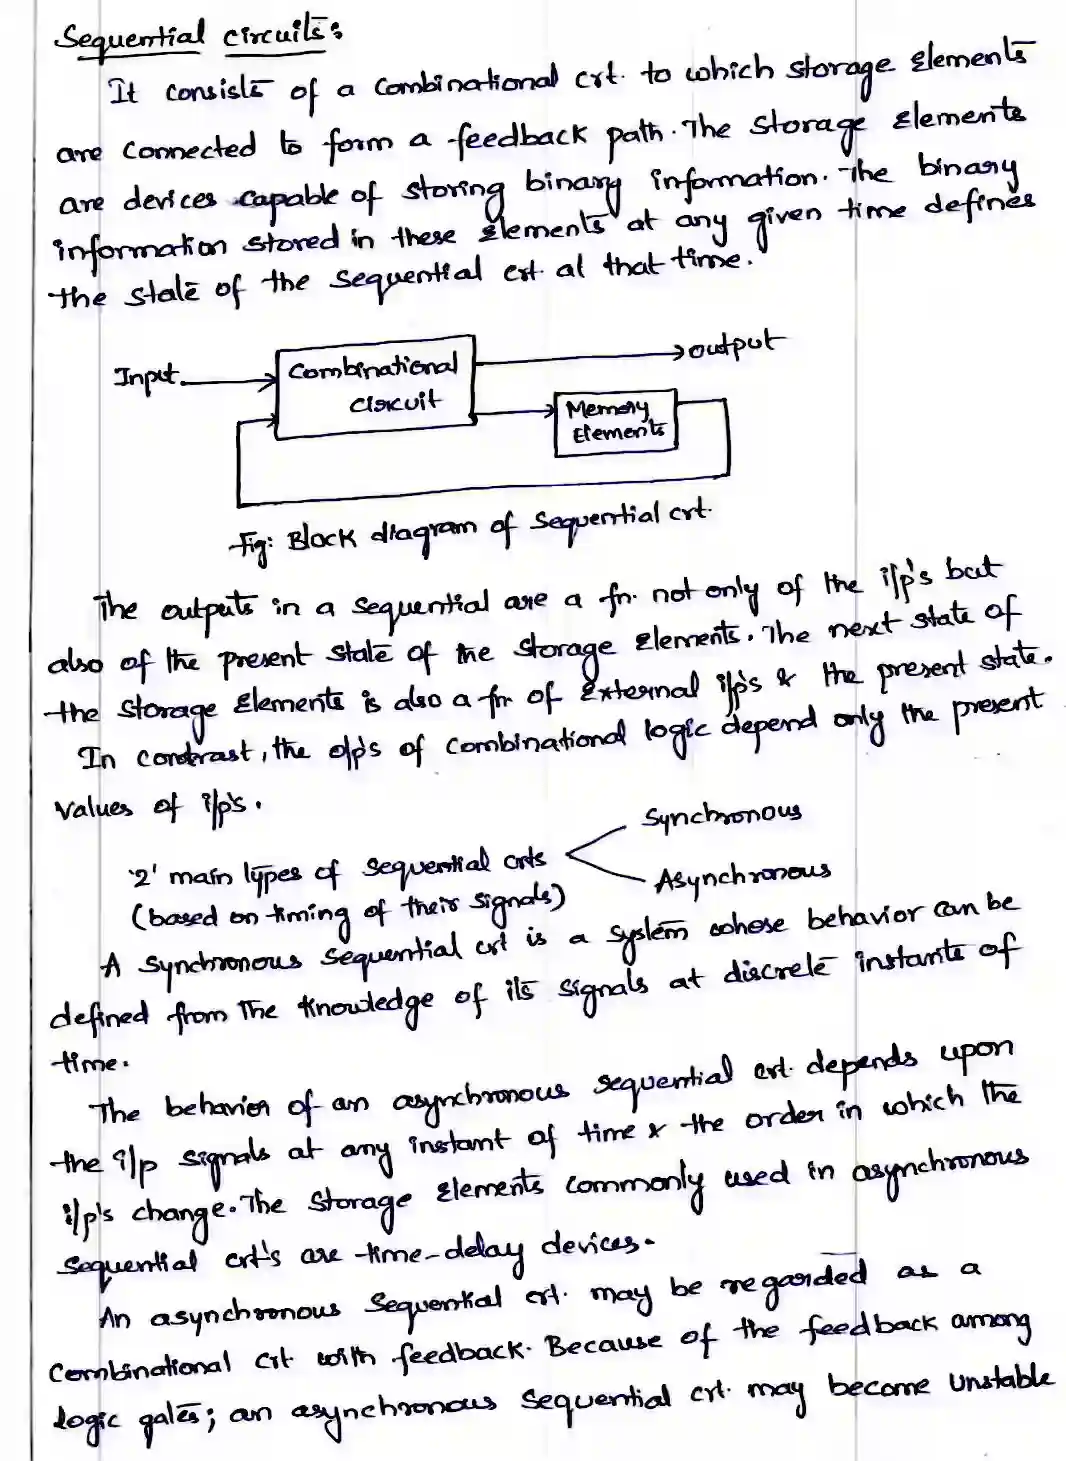 Sequential circuits:
It consists of a combinational crt. to which storage elements
are connected to form a feedback path. The storage elements
are devices capable of storing binary information. The binary
information stored in these elements at any given time defines
the state of the sequential crt. at that time.
Input
Combinational
circuit
output
Memory
Elements
Fig: Block diagram of sequential crt.
The outputs in a sequential are a fn. not only of the i/p's but
also of the present state of the storage elements. The next state of
the storage elements is also a fn of external i/p's & the present state.
In contrast, the o/p's of combinational logic depend only the present
values of i/p's.
'2' main types of sequential crts
(based on timing of their signals)
Synchronous
Asynchronous
A synchronous sequential crt is a system whose behavior can be
defined from the knowledge of its signals at discrete instants of
time.
The behavior of an asynchronous sequential crt. depends upon
the i/p signals at any instant of time & the order in which the
i/p's change. The storage elements commonly used in asynchronous
sequential crt's are time-delay devices.
An asynchronous sequential crt. may be regarded as a
combinational crt with feedback. Because of the feedback among
logic gates; an asynchronous sequential crt. may become unstable